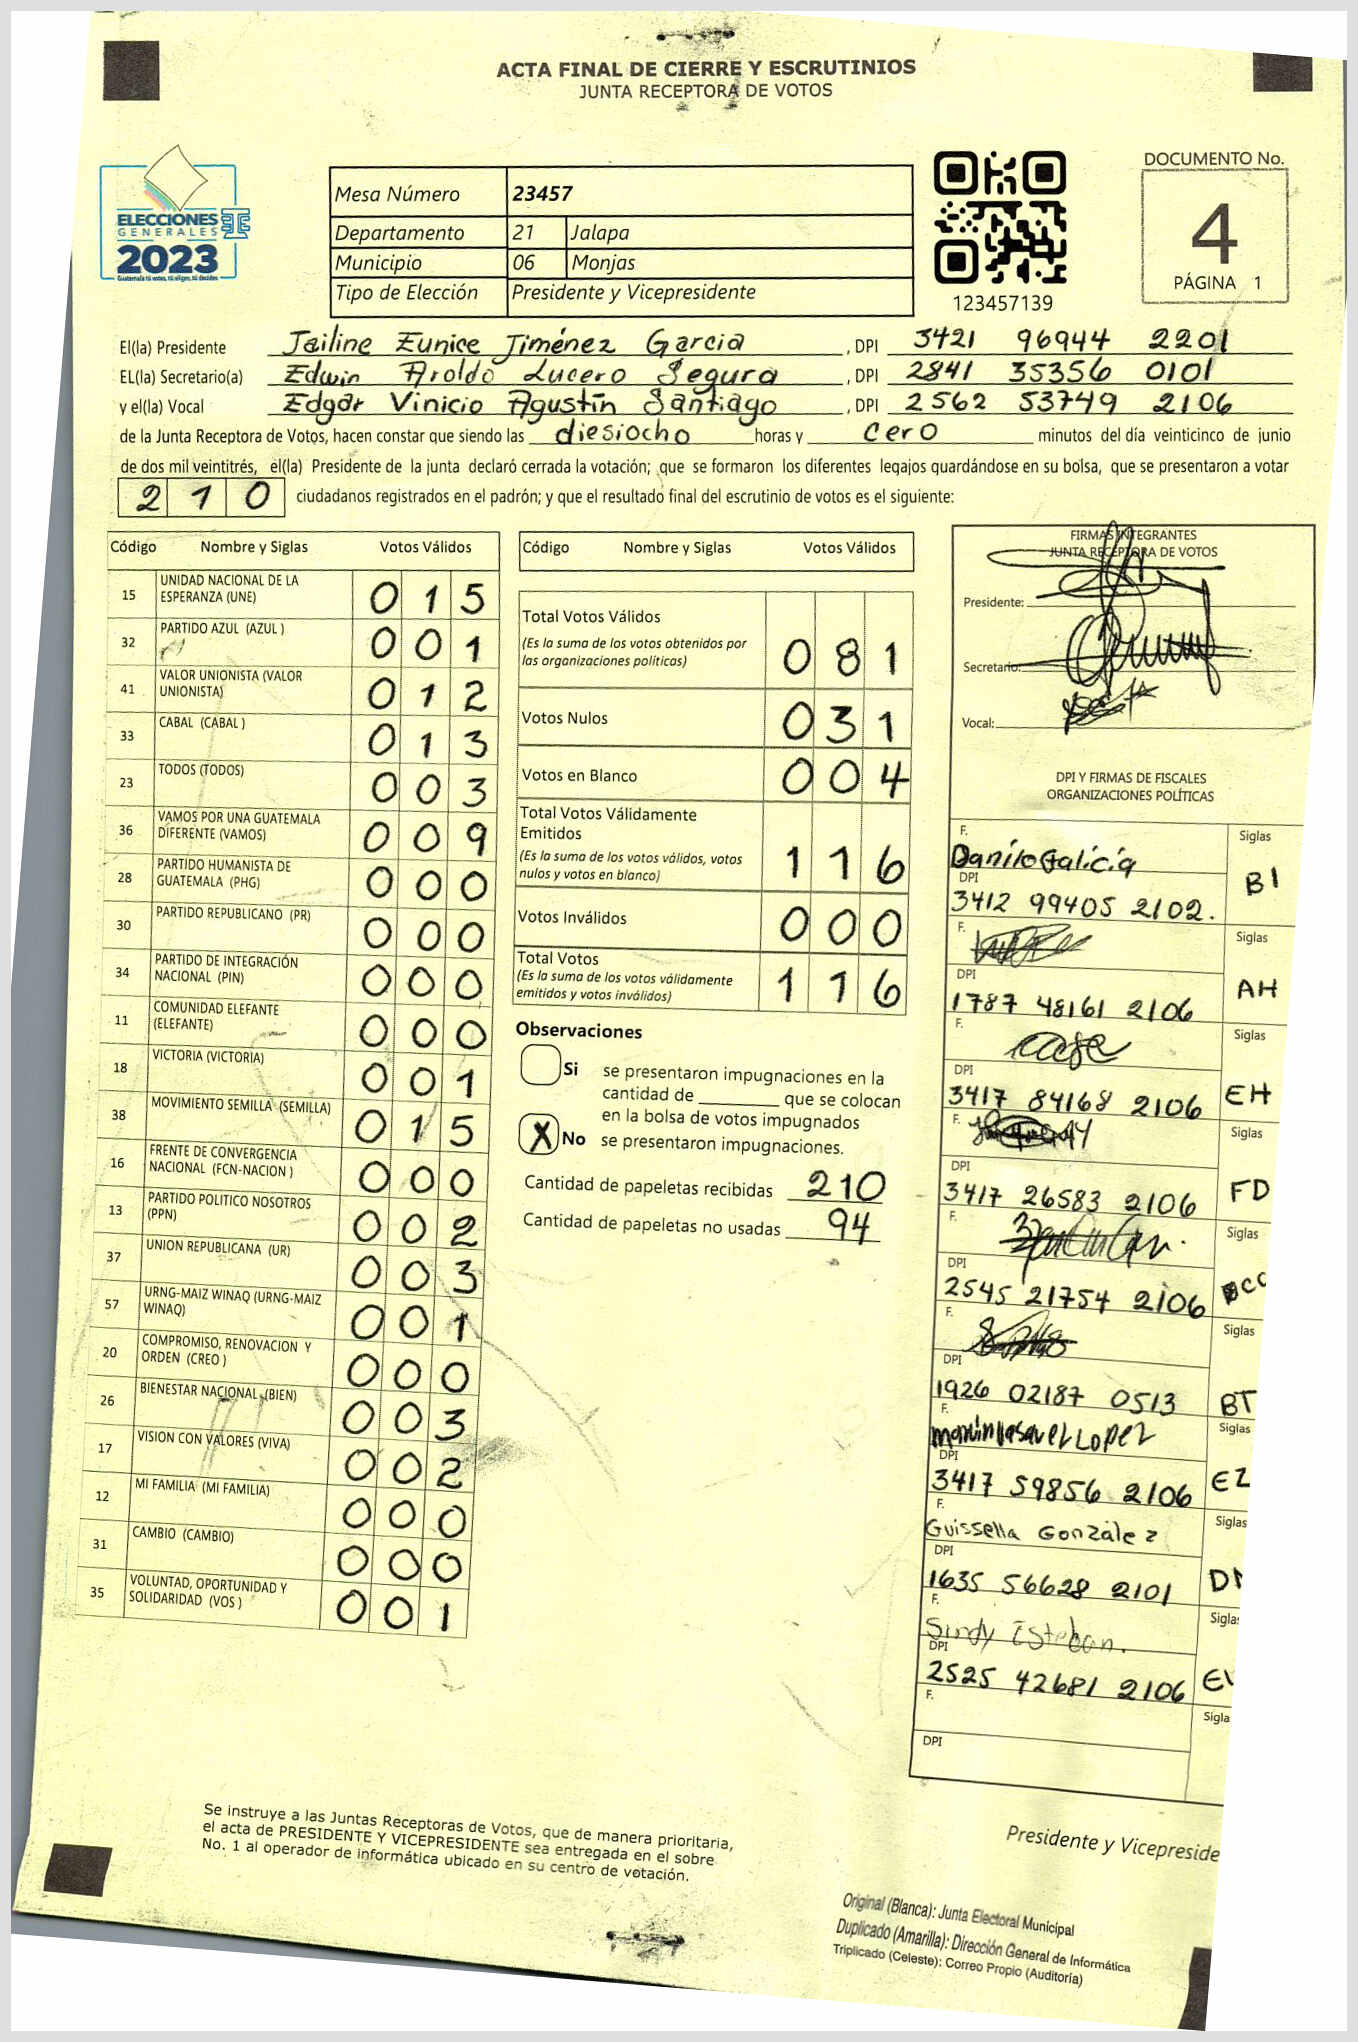 ACTA FINAL DE CIERRE Y ESCRUTINIOS
JUNTA RECEPTORA DE VOTOS
ELECCIONES
GENERALES
2023
Guatemala tú votas, tú eliges, tú decides
Mesa Número 23457
Departamento 21 Jalapa
Municipio 06 Monjas
Tipo de Elección Presidente y Vicepresidente
123457139
DOCUMENTO No.
4
PÁGINA 1
El(la) Presidente Jailine Eunice Jiménez Garcia , DPI 3421 96944 2201
EL(la) Secretario(a) Edwin Aroldo Lucero Segura , DPI 2841 35356 0101
y el(la) Vocal Edgar Vinicio Agustín Santiago , DPI 2562 53749 2106
de la Junta Receptora de Votos, hacen constar que siendo las diesiocho horas y cero minutos del día veinticinco de junio
de dos mil veintitrés, el(la) Presidente de la junta declaró cerrada la votación; que se formaron los diferentes legajos quardándose en su bolsa, que se presentaron a votar
210 ciudadanos registrados en el padrón; y que el resultado final del escrutinio de votos es el siguiente:
Código Nombre y Siglas Votos Válidos
15 UNIDAD NACIONAL DE LA ESPERANZA (UNE) 015
32 PARTIDO AZUL (AZUL ) 001
41 VALOR UNIONISTA (VALOR UNIONISTA) 012
33 CABAL (CABAL ) 013
23 TODOS (TODOS) 003
36 VAMOS POR UNA GUATEMALA DIFERENTE (VAMOS) 009
28 PARTIDO HUMANISTA DE GUATEMALA (PHG) 000
30 PARTIDO REPUBLICANO (PR) 000
34 PARTIDO DE INTEGRACIÓN NACIONAL (PIN) 000
11 COMUNIDAD ELEFANTE (ELEFANTE) 000
18 VICTORIA (VICTORIA) 001
38 MOVIMIENTO SEMILLA (SEMILLA) 015
16 FRENTE DE CONVERGENCIA NACIONAL (FCN-NACION ) 000
13 PARTIDO POLITICO NOSOTROS (PPN) 002
37 UNION REPUBLICANA (UR) 003
57 URNG-MAIZ WINAQ (URNG-MAIZ WINAQ) 001
20 COMPROMISO, RENOVACION Y ORDEN (CREO ) 000
26 BIENESTAR NACIONAL (BIEN) 003
17 VISION CON VALORES (VIVA) 002
12 MI FAMILIA (MI FAMILIA) 000
31 CAMBIO (CAMBIO) 000
35 VOLUNTAD, OPORTUNIDAD Y SOLIDARIDAD (VOS ) 001
Código Nombre y Siglas Votos Válidos
Total Votos Válidos
(Es la suma de los votos obtenidos por las organizaciones políticas) 081
Votos Nulos 031
Votos en Blanco 004
Total Votos Válidamente Emitidos
(Es la suma de los votos válidos, votos nulos y votos en blanco) 116
Votos Inválidos 000
Total Votos
(Es la suma de los votos válidamente emitidos y votos inválidos) 116
Observaciones
Si se presentaron impugnaciones en la
cantidad de ________ que se colocan
en la bolsa de votos impugnados
X No se presentaron impugnaciones.
Cantidad de papeletas recibidas 210
Cantidad de papeletas no usadas 94
FIRMAS INTEGRANTES
JUNTA RECEPTORA DE VOTOS
Presidente:
Secretario:
Vocal:
DPI Y FIRMAS DE FISCALES
ORGANIZACIONES POLÍTICAS
F. Danilo Galicia Siglas
DPI 3412 99405 2102. BI
F. Siglas
DPI 1787 48161 2106 AH
F. Siglas
DPI 3417 84168 2106 EH
F. Siglas
DPI 3417 26583 2106 FD
F. Siglas
DPI 2545 21754 2106
F. Siglas
DPI 1926 02187 0513 BT
F. Siglas
DPI 3417 59856 2106 EZ
F. Guissella Gonzàlez Siglas
DPI 1635 56628 2101
F. Sindy Esteban.
DPI 2525 42681 2106
F.
DPI
Se instruye a las Juntas Receptoras de Votos, que de manera prioritaria,
el acta de PRESIDENTE Y VICEPRESIDENTE sea entregada en el sobre
No. 1 al operador de informática ubicado en su centro de votación.
Presidente y Vicepreside
Original (Blanca): Junta Electoral Municipal
Duplicado (Amarilla): Dirección General de Informática
Triplicado (Celeste): Correo Propio (Auditoría)